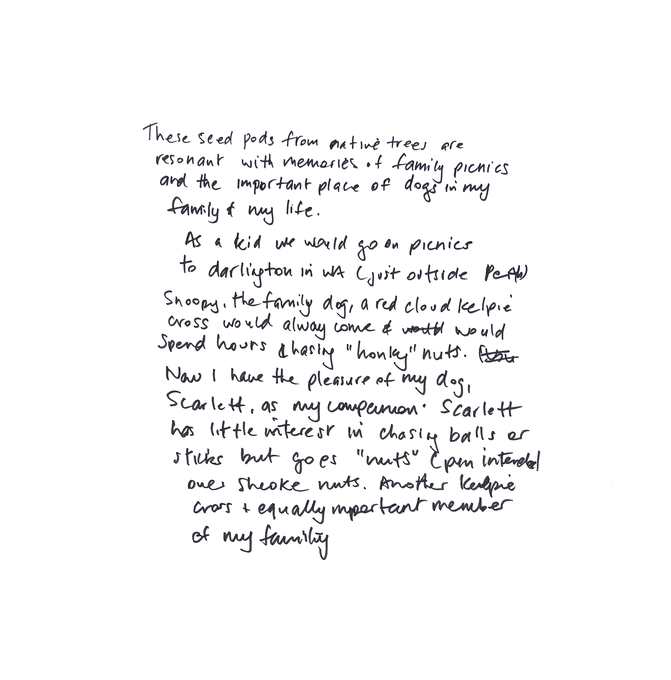 These seed pods from native trees are
resonant with memories of family picnics
and the important place of dogs in my
family & my life.
As a kid we would go on picnics
to darlington in WA (just outside Perth)
Snoopy, the family dog, a red cloud kelpie
cross would alway come & would would
spend hours chasing "honky" nuts.
Now I have the pleasure of my dog,
Scarlett, as my companion. Scarlett
has little interest in chasing balls or
sticks but goes "nuts" (pun intended
over sheoke nuts. Another kelpie
cross + equally important member
of my family